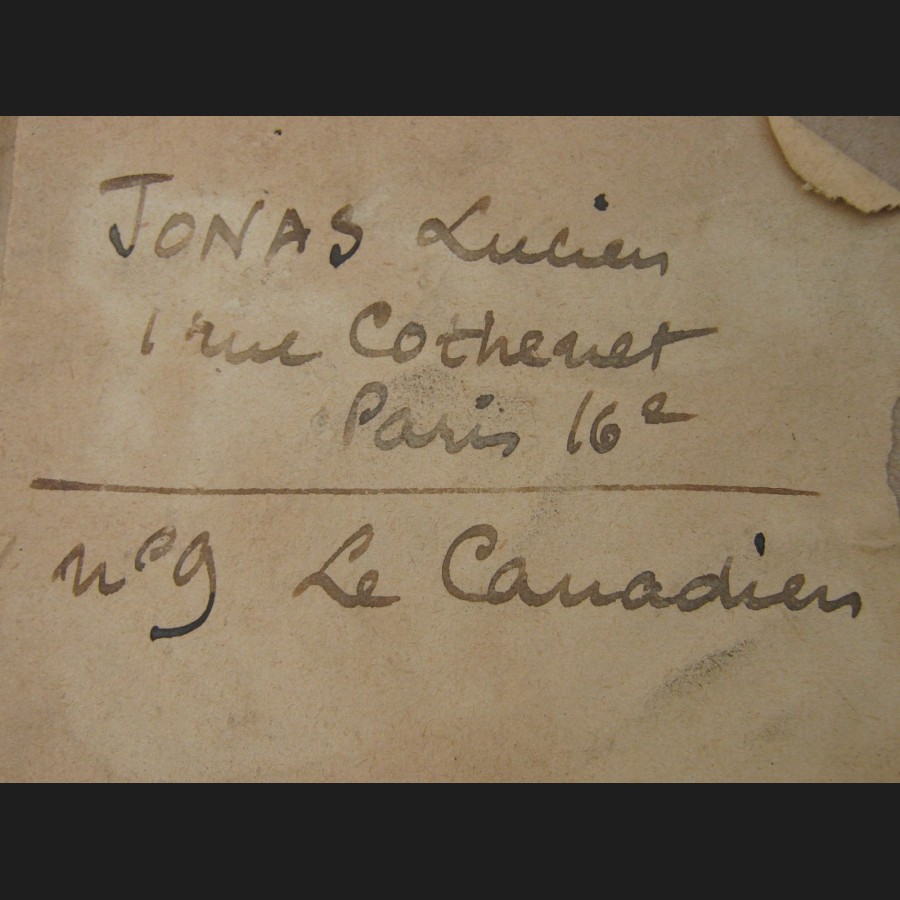 JONAS Lucien
1 rue Cothenet
Paris 16e
n°9 Le Canadien